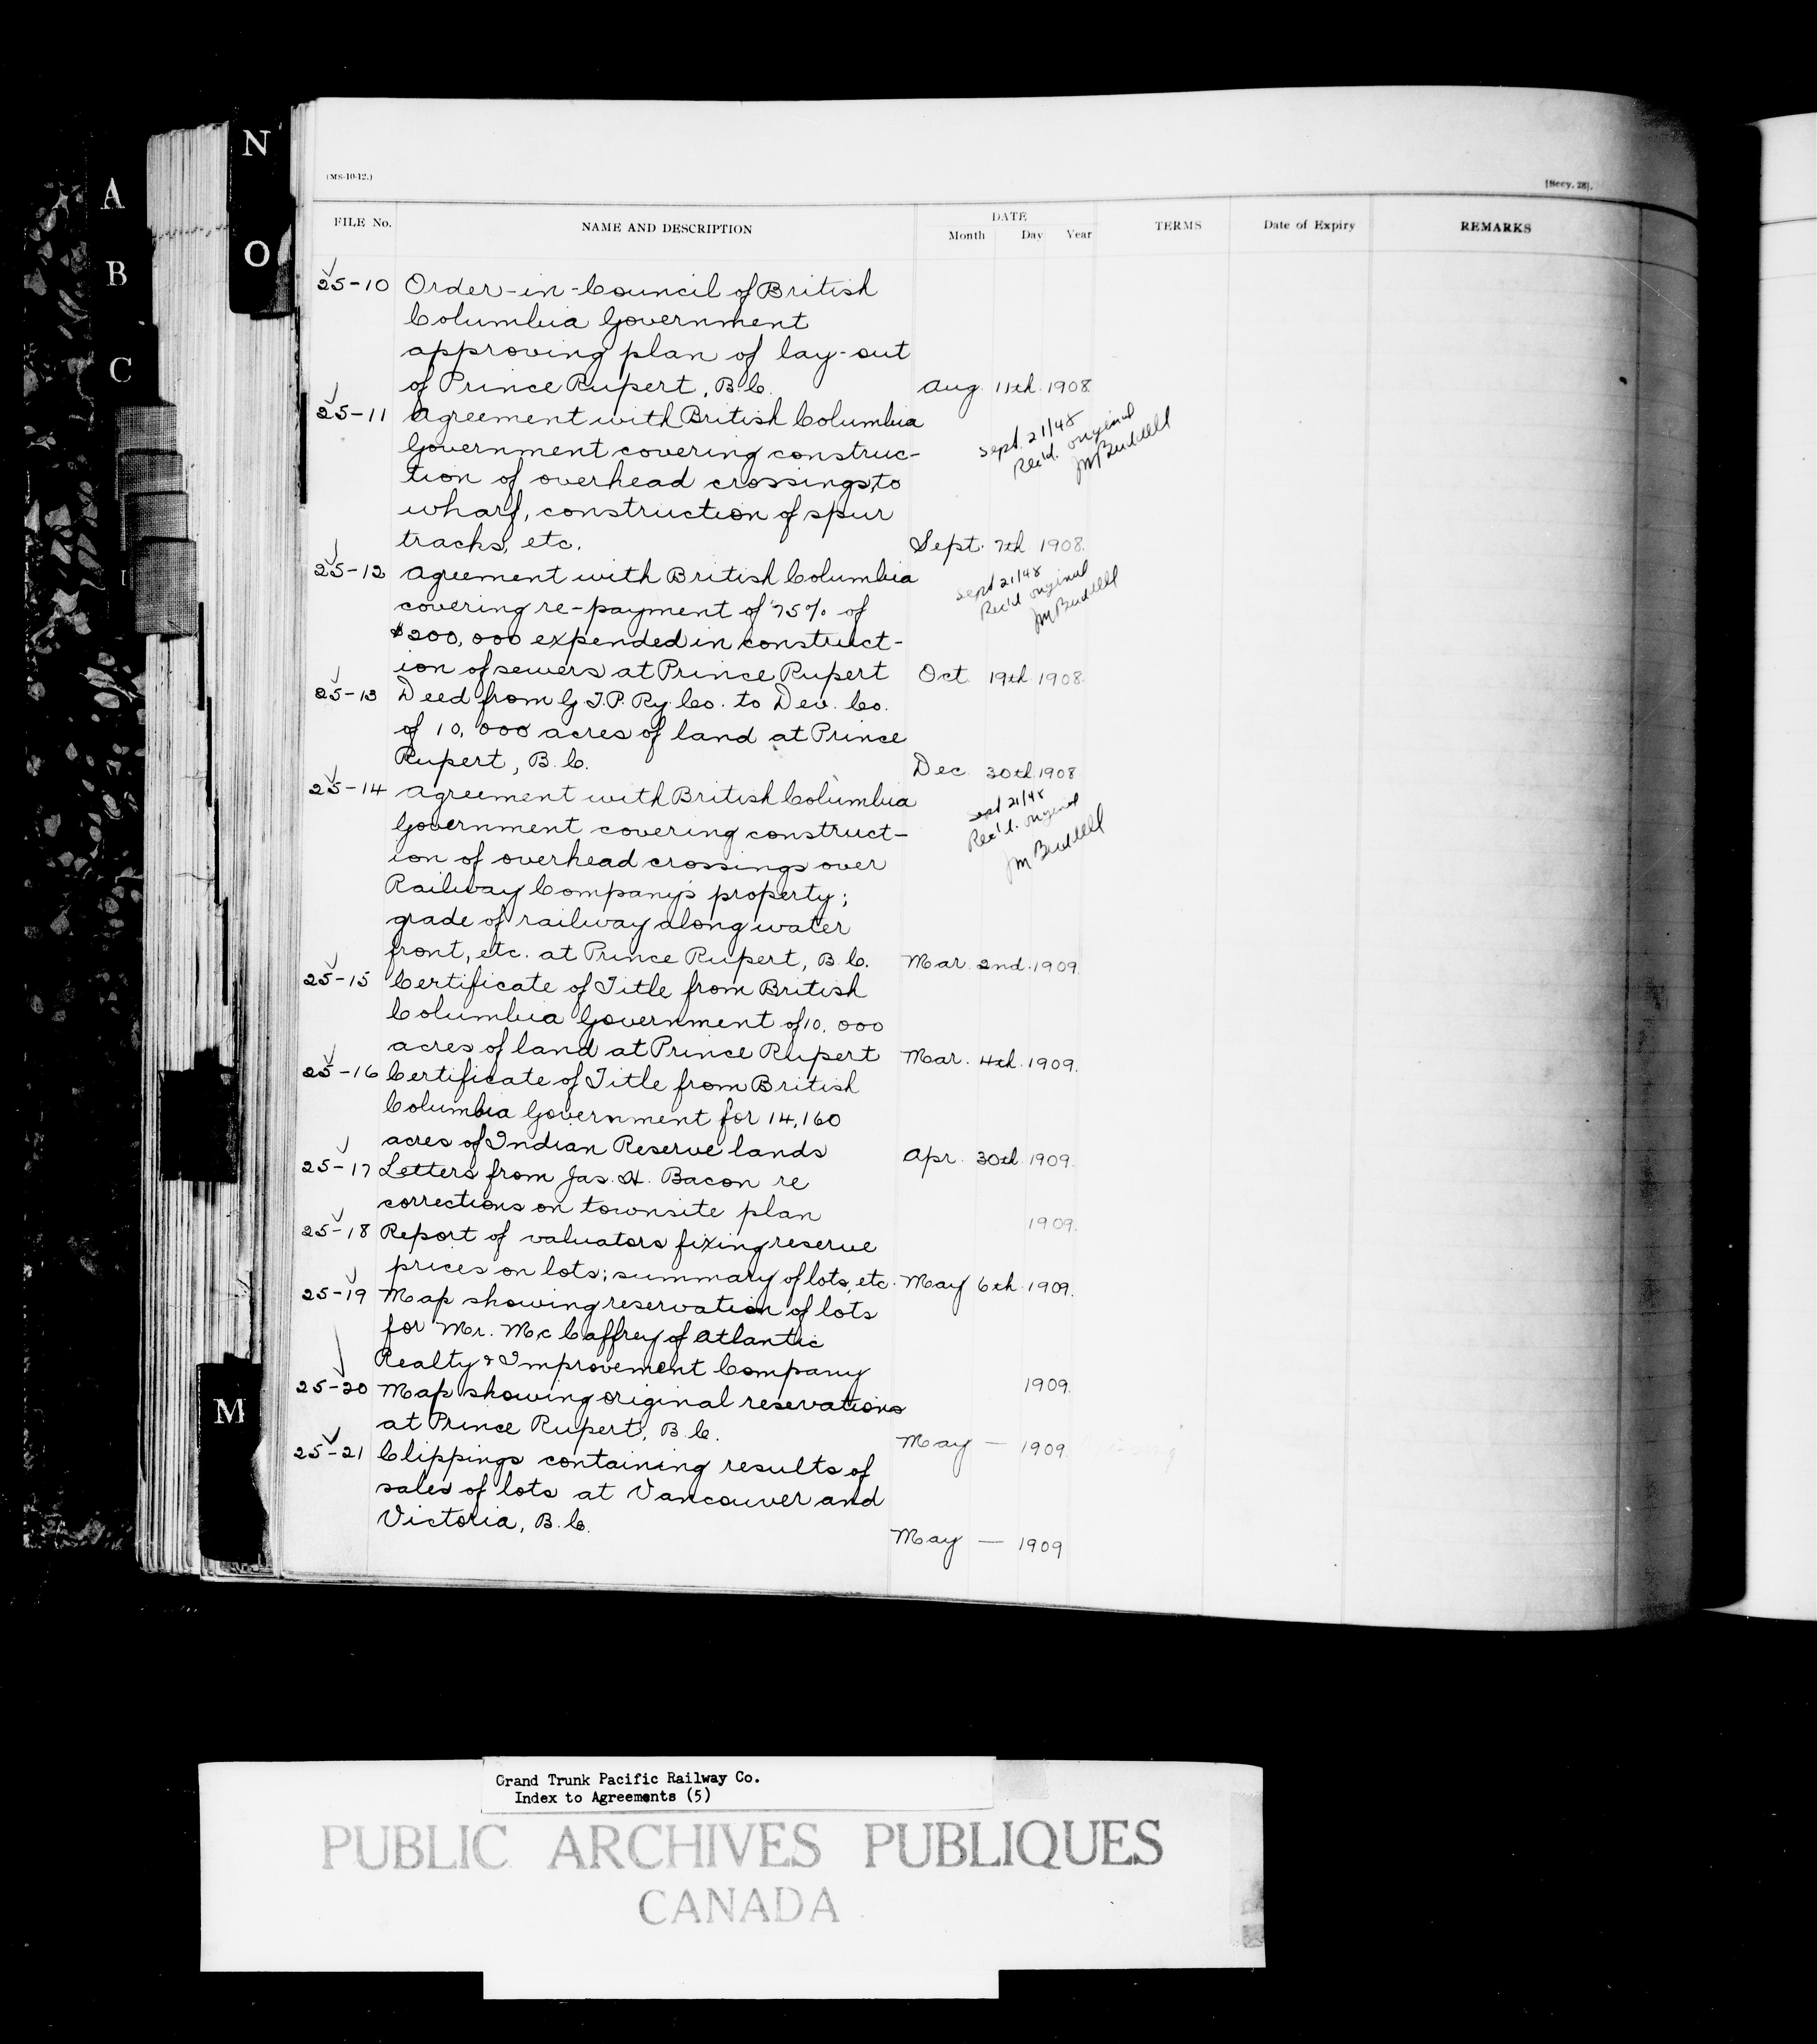 N
O
A
B
C
I
M
(MS-10-12.)
[Secy. 28].
FILE No. NAME AND DESCRIPTION DATE Month Day Year TERMS Date of Expiry REMARKS
25-10 Order-in-Council of British
Columbia Government
approving plan of lay-out
of Prince Rupert, B.C. Aug. 11th 1908.
25-11 Agreement with British Columbia
Sept. 21/48
Rec'd. original
Government covering construc-
tion of overhead crossings, to
wharf, construction of spur
tracks, etc. Sept. 7th 1908.
25-12 Agreement with British Columbia
Sept 21/48
Rec'd original
covering re-payment of 75% of
$200,000 expended in construct-
ion of sewers at Prince Rupert Oct. 19th 1908.
25-13 Deed from G.T.P. Ry. Co. to Dev. Co.
of 10,000 acres of land at Prince
Rupert, B.C. Dec. 30th 1908
25-14 Agreement with British Columbia
Sept 21/48
Rec'd. original
Government covering construct-
ion of overhead crossings over
Railway Company's property;
grade of railway along water
front, etc. at Prince Rupert, B.C. Mar. 2nd. 1909.
25-15 Certificate of Title from British
Columbia Government of 10,000
acres of land at Prince Rupert Mar. 4th. 1909.
25-16 Certificate of Title from British
Columbia Government for 14,160
acres of Indian Reserve lands Apr. 30th 1909.
25-17 Letters from Jas. H. Bacon re
corrections on townsite plan 1909.
25-18 Report of valuators fixing reserve
prices on lots; summary of lots, etc. May 6th 1909.
25-19 Map showing reservation of lots
for Mr. McCaffrey of Atlantic
Realty & Improvement Company 1909.
25-20 Map showing original reservations
at Prince Rupert, B.C. May — 1909.
25-21 Clippings containing results of
sales of lots at Vancouver and
Victoria, B.C. May — 1909
Grand Trunk Pacific Railway Co.
Index to Agreements (5)
PUBLIC ARCHIVES PUBLIQUES
CANADA